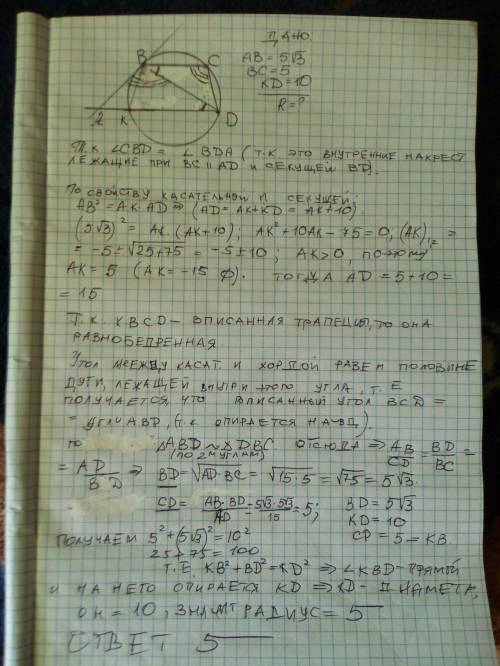 B C
A K D
ДАНО.
AB = 5√3
BC = 5
KD = 10
R = ?
Т.К ∠CBD = ∠BDA (Т.К ЭТО ВНУТРЕННИЕ НАКРЕСТ
ЛЕЖАЩИЕ ПРИ BC ∥ AD И СЕКУЩЕЙ BD).
ПО СВОЙСТВУ КАСАТЕЛЬНОЙ И СЕКУЩЕЙ:
AB² = AK·AD ⇒ (AD = AK+KD = AK+10).
(5√3)² = AK·(AK+10); AK²+10AK-75=0, (AK)₁,₂ =
= -5±√25+75 = -5±10; AK>0, ПОЭТОМУ
AK=5 (AK=-15 ф). ТОГДА AD = 5+10=
= 15
Т.К KBCD – ВПИСАННАЯ ТРАПЕЦИЯ, ТО ОНА
РАВНОБЕДРЕННАЯ.
УГОЛ МЕЖДУ КАСАТ. И ХОРДОЙ РАВЕН ПОЛОВИНЕ
ДУГИ, ЛЕЖАЩЕЙ ВНУТРИ ЭТОГО УГЛА, Т. Е
ПОЛУЧАЕТСЯ, ЧТО ВПИСАННЫЙ УГОЛ BCD =
= УГЛУ ABD, (Т.К ОПИРАЕТСЯ НА BD).
ПО △ABD ∼ △DBC ОТСЮДА ⇒ AB/CD = BD/BC =
(ПО 2М УГЛАМ)
= AD/BD ⇒ BD = √AD·BC = √15·5 = √75 = 5√3.
CD = AB·BD/AD = 5√3·5√3/15 = 5; BD = 5√3
KD = 10
CD = 5 = KB.
ПОЛУЧАЕМ 5²+(5√3)² = 10²
25+75 = 100
Т.Е KB²+BD² = KD² ⇒ ∠KBD – ПРЯМОЙ
И НА НЕГО ОПИРАЕТСЯ KD ⇒ KD – ДИАМЕТР,
ОН = 10, ЗНАЧИТ РАДИУС = 5
ОТВЕТ 5